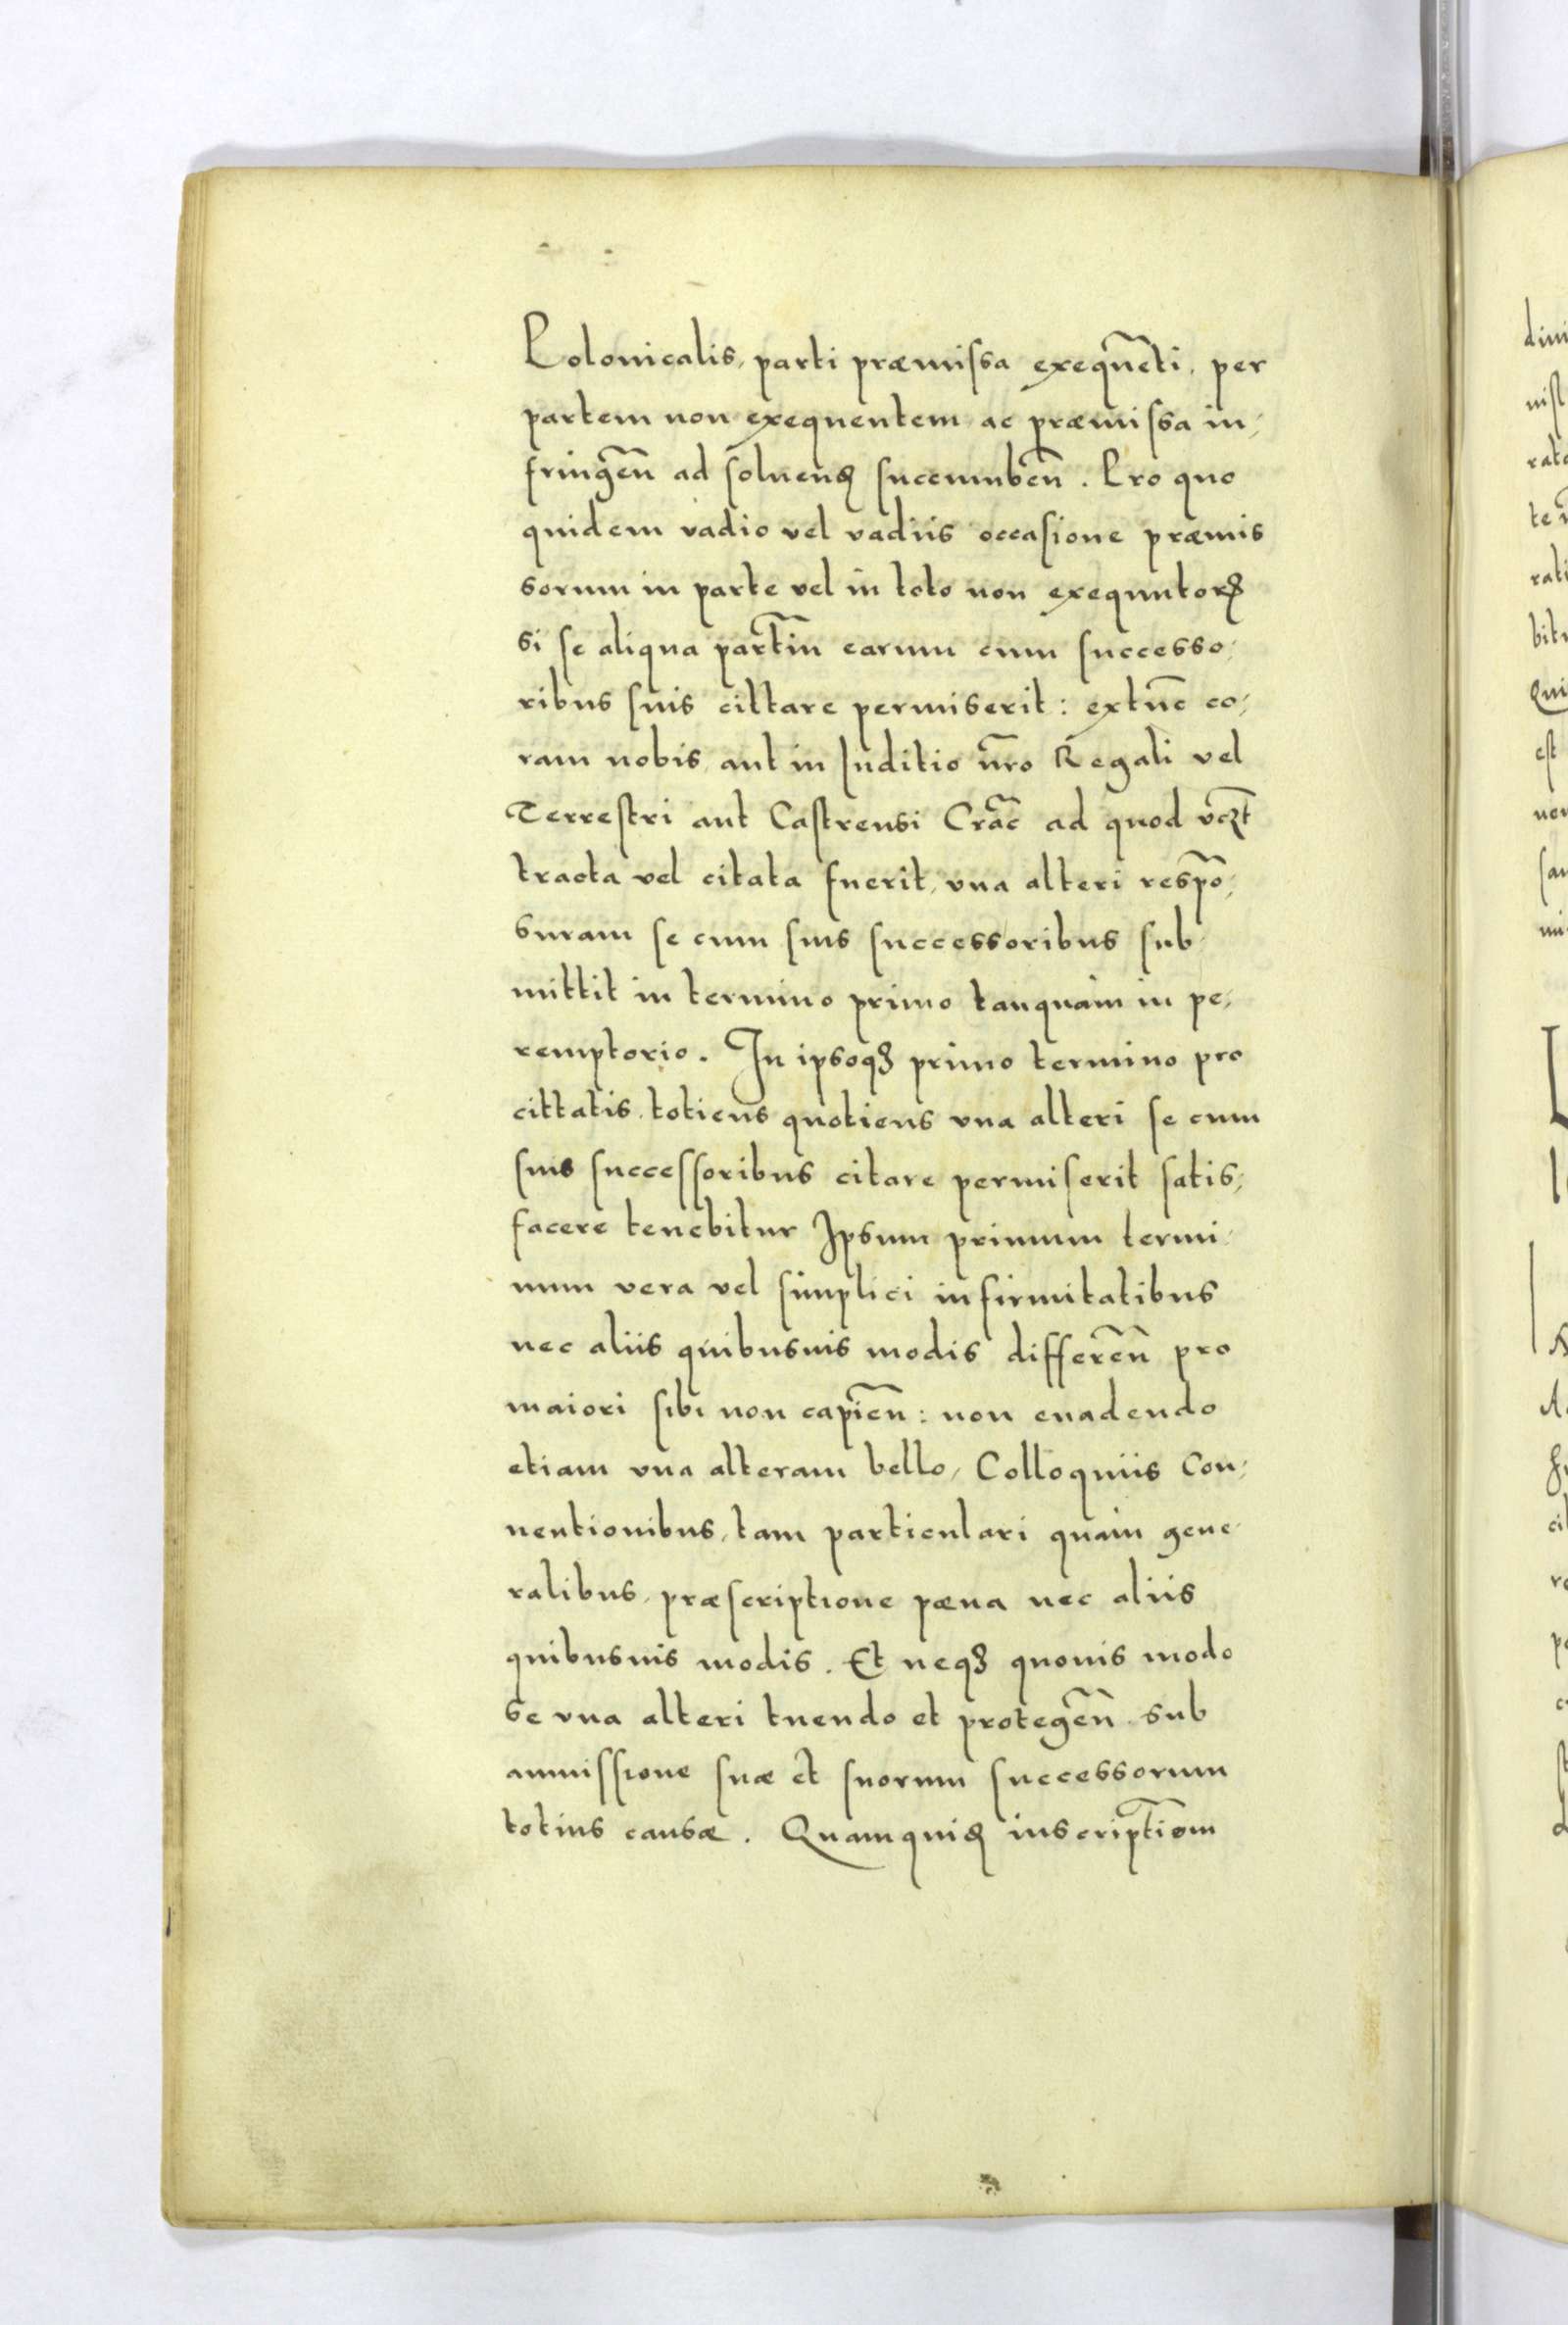 Polonicalis, parti præmissa exequẽti, per
partem non exequentem ac præmissa in,
fringeñ ad soluenđ succumbeñ. Pro quo
quidem vadio vel vadiis occasione præmis
sorum in parte vel in toto non exequutorꝝ
si se aliqua partiũ earum cum successo,
ribus suis cittare permiserit: extũc co,
ram nobis, aut in Iuditio nr̃o Regali vel
Terrestri aut Castrensi Crac̃ ad quod vcꝫt
tracta vel citata fuerit, vna alteri respõ,
suram se cum suis successoribus sub
mittit in termino primo tanquam in pe,
remptorio. In ipsoqꝫ primo termino pro
cittatis, totiens quotiens vna alteri se cum
suis successoribus citare permiserit satis,
facere tenebitur Ipsum primum termi,
num vera vel simplici infirmitatibus
nec aliis quibusuis modis differeñ pro
maiori sibi non capieñ: non euadendo
etiam vna alteram bello, Colloquiis Con,
uentionibus, tam particulari quam gene
ralibus, præscriptione pæna nec aliis
quibusuis modis. Et neqꝫ quouis modo
se vna alteri tuendo et protegeñ sub
ammissione suæ et suorum successorum
totius causæ. Quamquiđ inscriptiõm